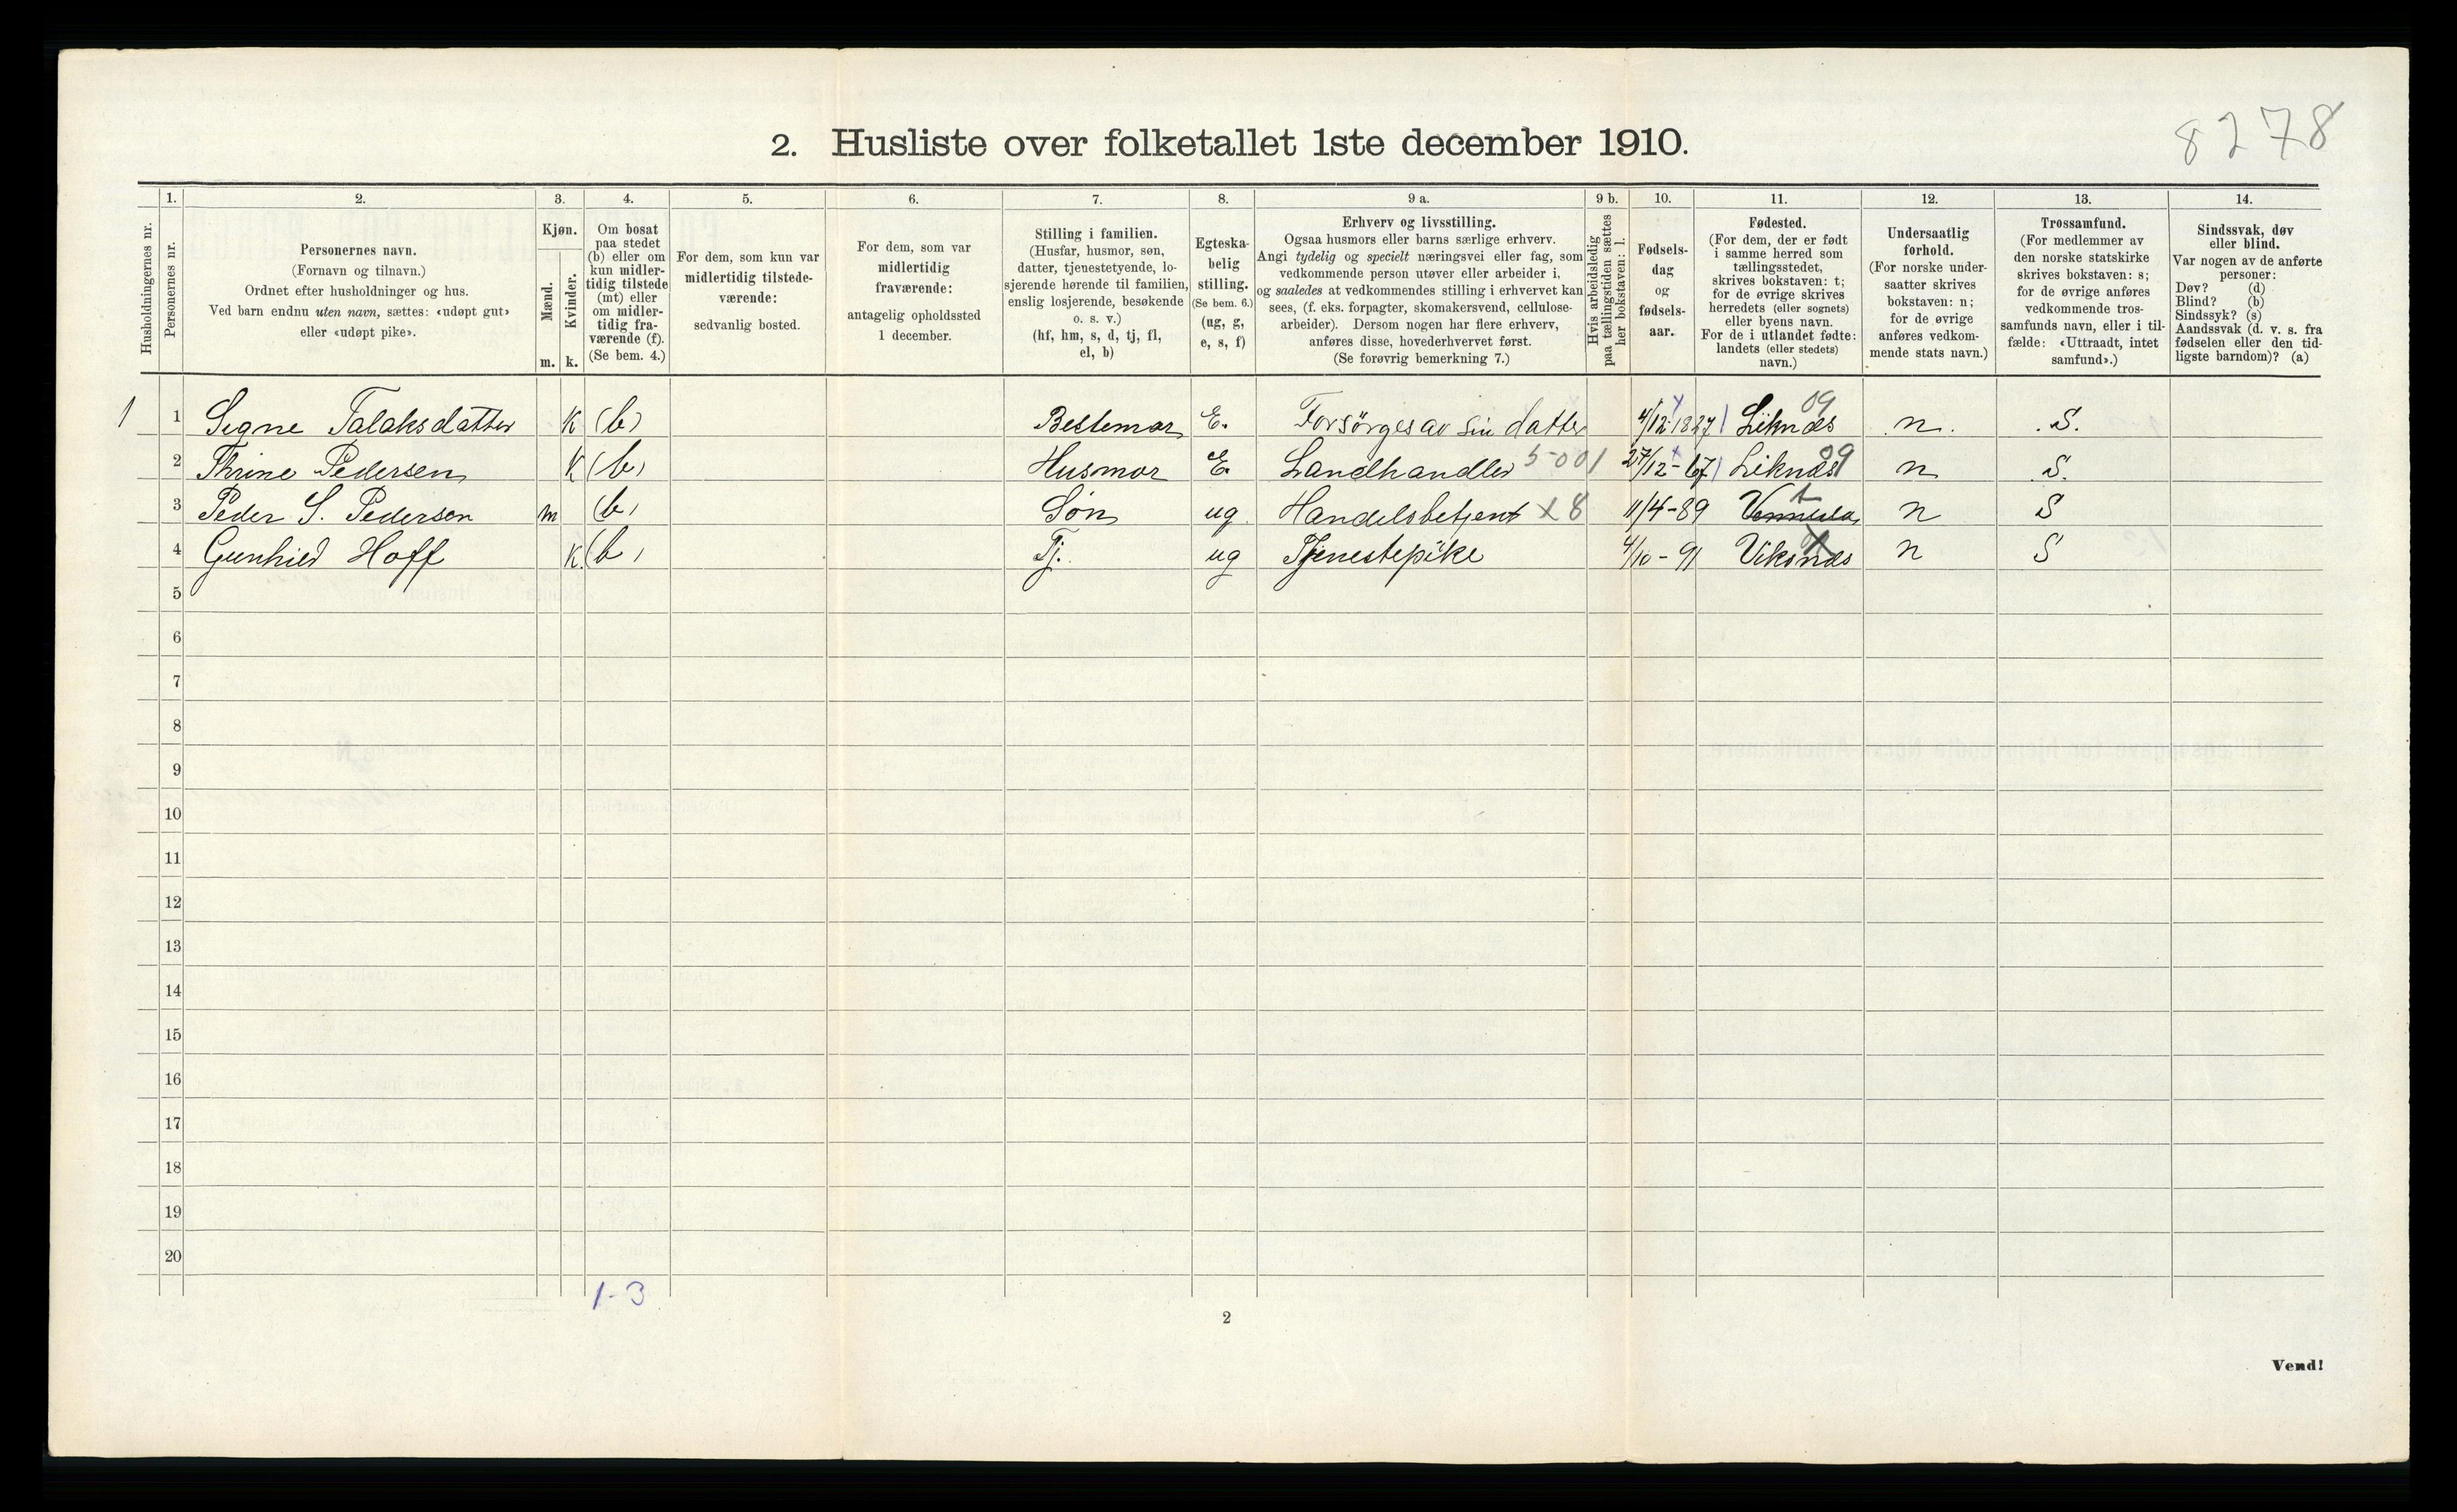 8278
2. Husliste over folketallet 1ste december 1910.
Husholdningernes nr.
1.
Personernes nr.
2.
Personernes navn.
(Fornavn og tilnavn.)
Ordnet efter husholdninger og hus.
Ved barn endnu uten navn, sættes: «udøpt gut»
eller «udøpt pike».
3.
Kjøn.
Mænd.
Kvinder.
m. k.
4.
Om bosat
paa stedet
(b) eller om
kun midler-
tidig tilstede
(mt) eller
om midler-
tidig fra-
værende (f).
(Se bem. 4.)
5.
For dem, som kun var
midlertidig tilstede-
værende:
sedvanlig bosted.
6.
For dem, som var
midlertidig
fraværende:
antagelig opholdssted
1 december.
7.
Stilling i familien.
(Husfar, husmor, søn,
datter, tjenestetyende, lo-
sjerende hørende til familien,
enslig losjerende, besøkende
o. s. v.)
(hf, hm, s, d, tj, fl,
el, b)
8.
Egteska-
belig
stilling.
(Se bem. 6.)
(ug, g,
e, s, f)
9 a.
Erhverv og livsstilling.
Ogsaa husmors eller barns særlige erhverv.
Angi tydelig og specielt næringsvei eller fag, som
vedkommende person utøver eller arbeider i,
og saaledes at vedkommendes stilling i erhvervet kan
sees, (f. eks. forpagter, skomakersvend, cellulose-
arbeider). Dersom nogen har flere erhverv,
anføres disse, hovederhvervet først.
(Se forøvrig bemerkning 7.)
9 b.
Hvis arbeidsledig
paa tællingstiden sættes
her bokstaven: l.
10.
Fødsels-
dag
og
fødsels-
aar.
11.
Fødested.
(For dem, der er født
i samme herred som
tællingsstedet,
skrives bokstaven: t;
for de øvrige skrives
herredets (eller sognets)
eller byens navn.
For de i utlandet fødte:
landets (eller stedets)
navn.)
12.
Undersaatlig
forhold.
(For norske under-
saatter skrives
bokstaven: n;
for de øvrige
anføres vedkom-
mende stats navn.)
13.
Trossamfund.
(For medlemmer av
den norske statskirke
skrives bokstaven: s;
for de øvrige anføres
vedkommende tros-
samfunds navn, eller i til-
fælde: «Uttraadt, intet
samfund».)
14.
Sindssvak, døv
eller blind.
Var nogen av de anførte
personer:
Døv? (d)
Blind? (b)
Sindssyk? (s)
Aandssvak (d. v. s. fra
fødselen eller den tid-
ligste barndom)? (a)
1 1 Signe Talaksdatter K (b) Bestemor E. Forsörges av sin datter 4/12 1827 Liknæs 09 n. S.
2 Thrine Pedersen K (b) Husmor E. Landhandler 5-001 27/12-67 Liknæs 09 n S.
3 Peder S. Pedersen m (b) Sön ug. Handelsbetjent x8 11/4-89 Vennesla t n S
4 Gunhild Hoff K. (b) Tj. ug Tjenestepike 4/10-91 Viksnæs n S
5
6
7
8
9
10
11
12
13
14
15
16
17
18
19
20
1-3
2
Vend!